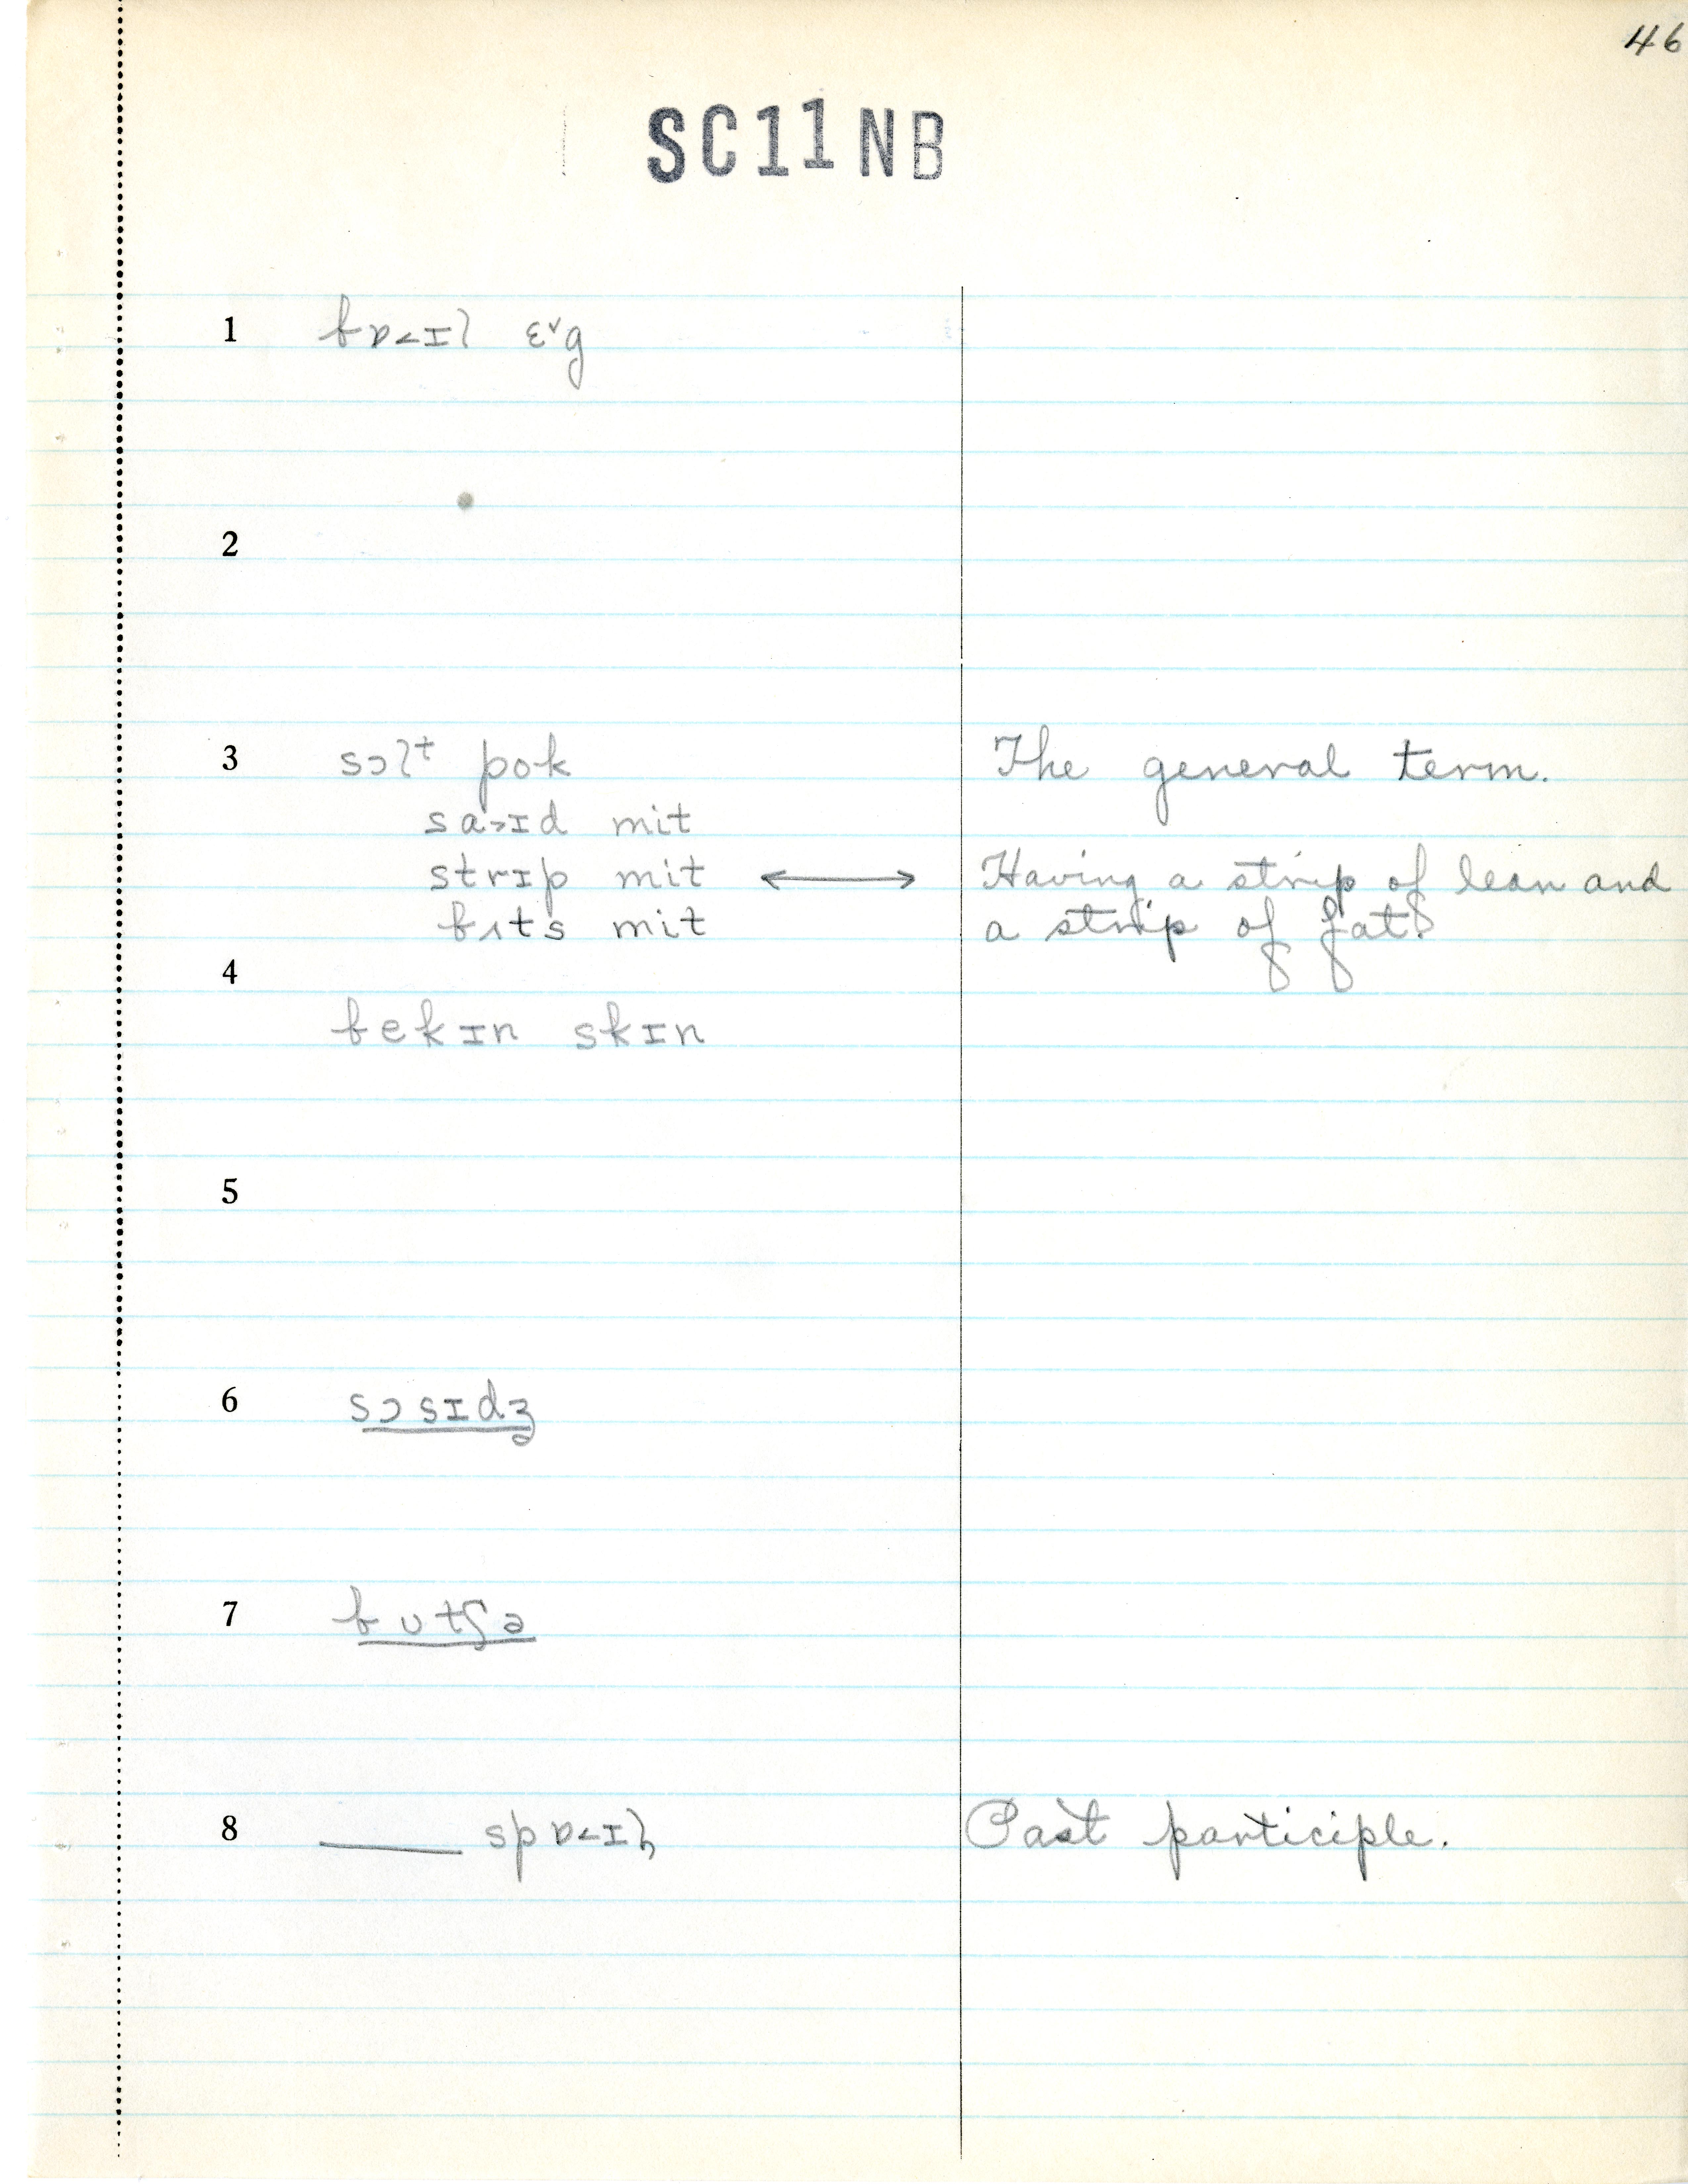 46
SC11NB
1 bɒ˂ɪl ɛ˅g
2
3 sɔlᵗ pok The general term.
sa˃ɪd mit
strɪp mit ⟷ Having a strip of lean and
bʌts mit a strip of fat.
4
bekɪn skɪn
5
6 sɔsɪdʒ
7 bʊtʃə
8 ____ spɒ˂ɪl Past participle.